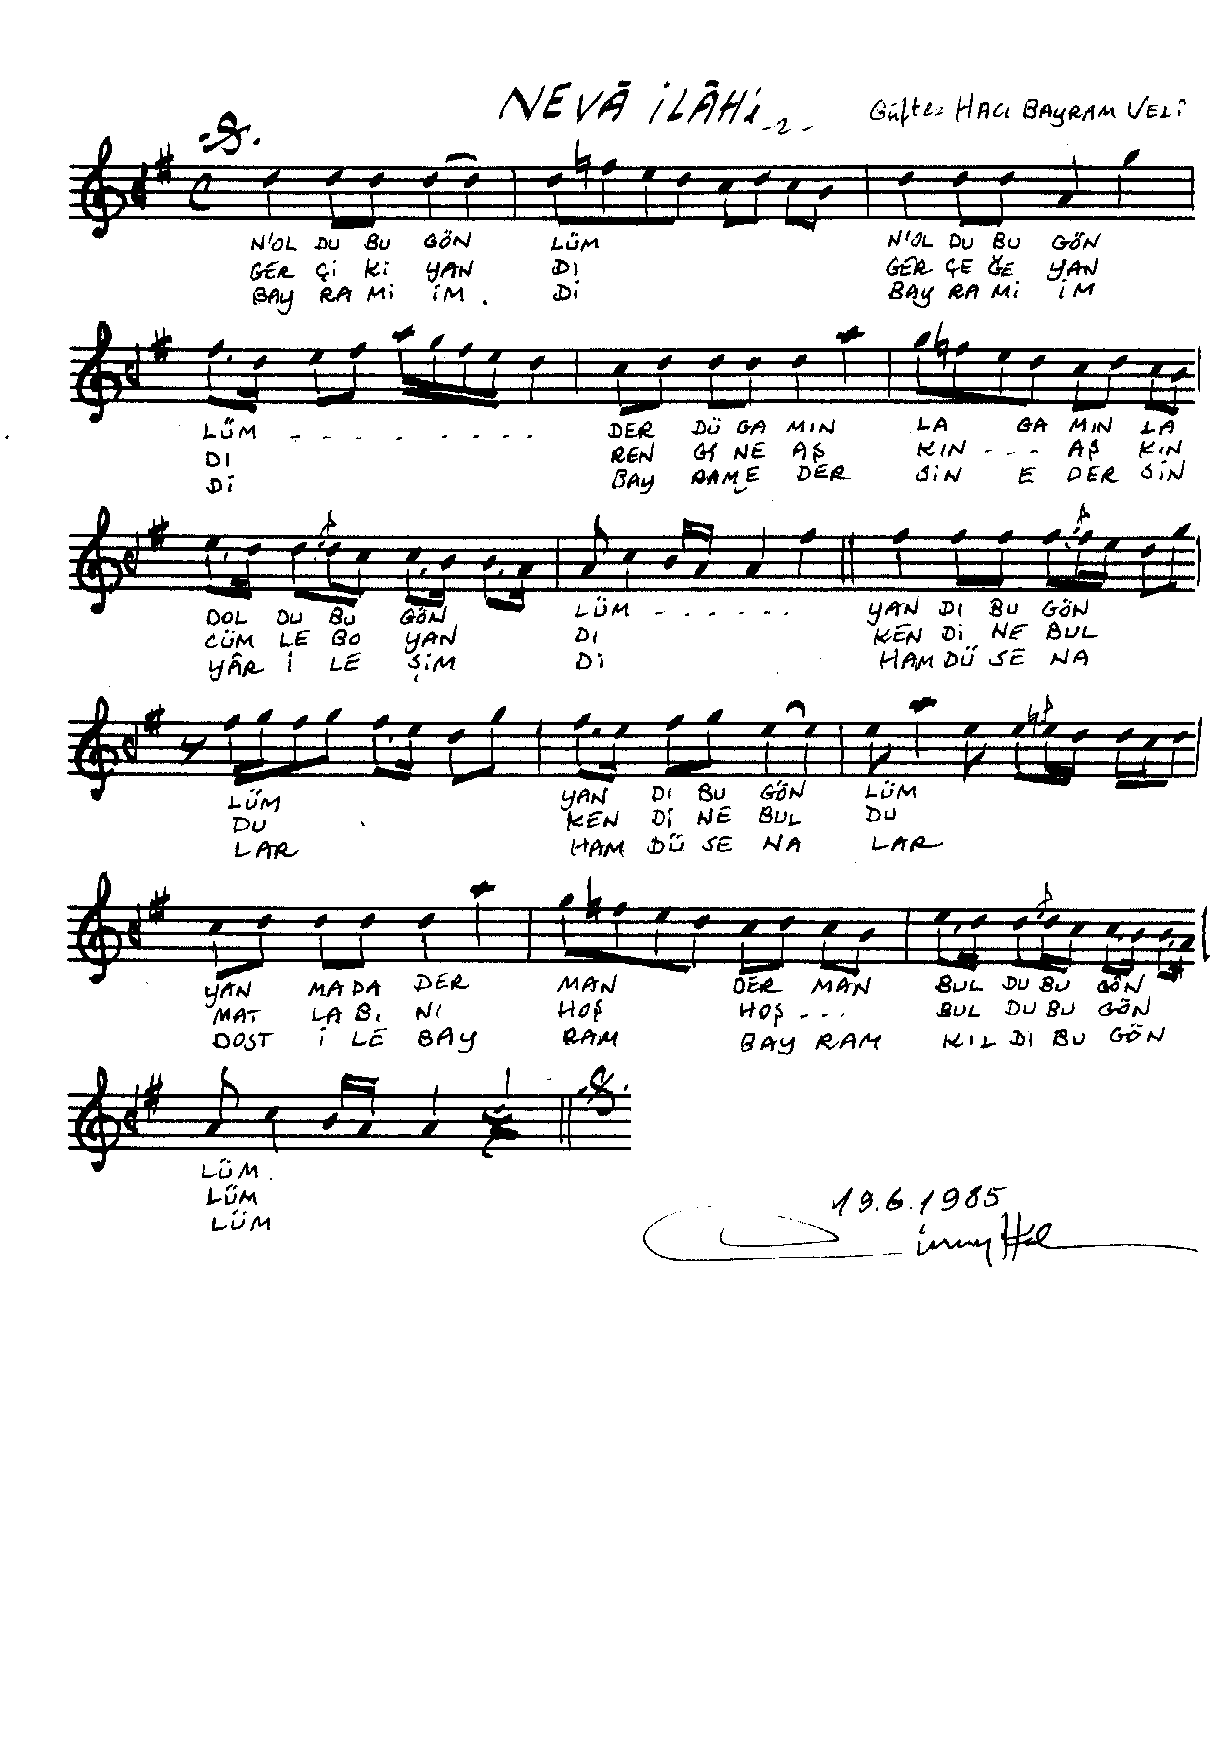 NEVÂ İLÂHİ -2-
Güfte: HACI BAYRAM VELİ
N'OL DU BU GÖN LÜM N'OL DU BU GÖN
GER Çİ Kİ YAN DI GER ÇE ĞE YAN
BAY RA Mİ İM . Dİ BAY RA Mİ İM
LÜM - - - - - - - DER DÜ GA MIN LA GA MIN LA
DI REN Gİ NE AŞ KIN - - - AŞ KIN
Dİ BAY RAM E DER SİN E DER SİN
DOL DU BU GÖN LÜM - - - - - - YAN DI BU GÖN
CÜM LE BO YAN DI KEN Dİ NE BUL
YÂR İ LE ŞİM Dİ HAM DÜ SE NA
LÜM YAN DI BU GÖN LÜM
DU KEN Dİ NE BUL DU
LAR HAM DÜ SE NA LAR
YAN MA DA DER MAN DER MAN BUL DU BU GÖN
MAT LA BI NI HOŞ HOŞ - - - BUL DU BU GÖN
DOST İ LE BAY RAM BAY RAM KIL DI BU GÖN
LÜM .
LÜM
LÜM
19.6.1985